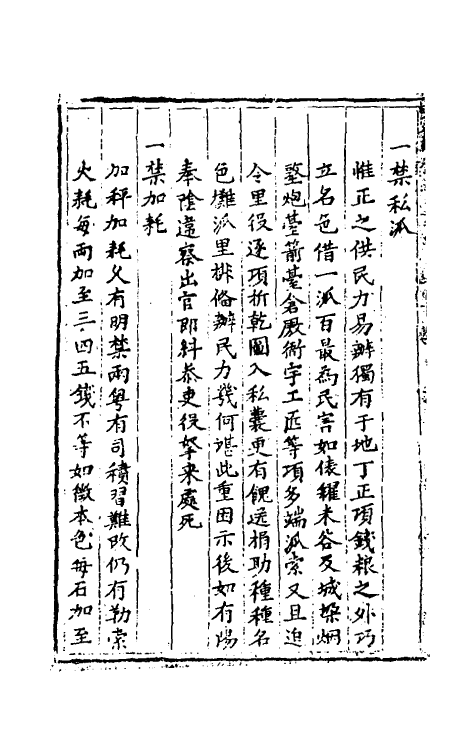 一禁私派
惟正之供民力易辦獨有于地丁正項錢粮之外巧
立名色借一派百最為民害如俵糴米谷及城塹烟
墪炮臺箭臺倉廒衙宇工匠等項多端派索又且迫
令里役逐項折乾圖入私囊更有餽送捐助種種名
色攤派里排俻辦民力幾何堪此重困示後如有陽
奉陰違察出官即糾叅吏役拏來處死
一禁加耗
加秤加耗久有明禁兩粤有司積習難改仍有勒索
火耗每兩加至三四五錢不等如徵本色每石加至